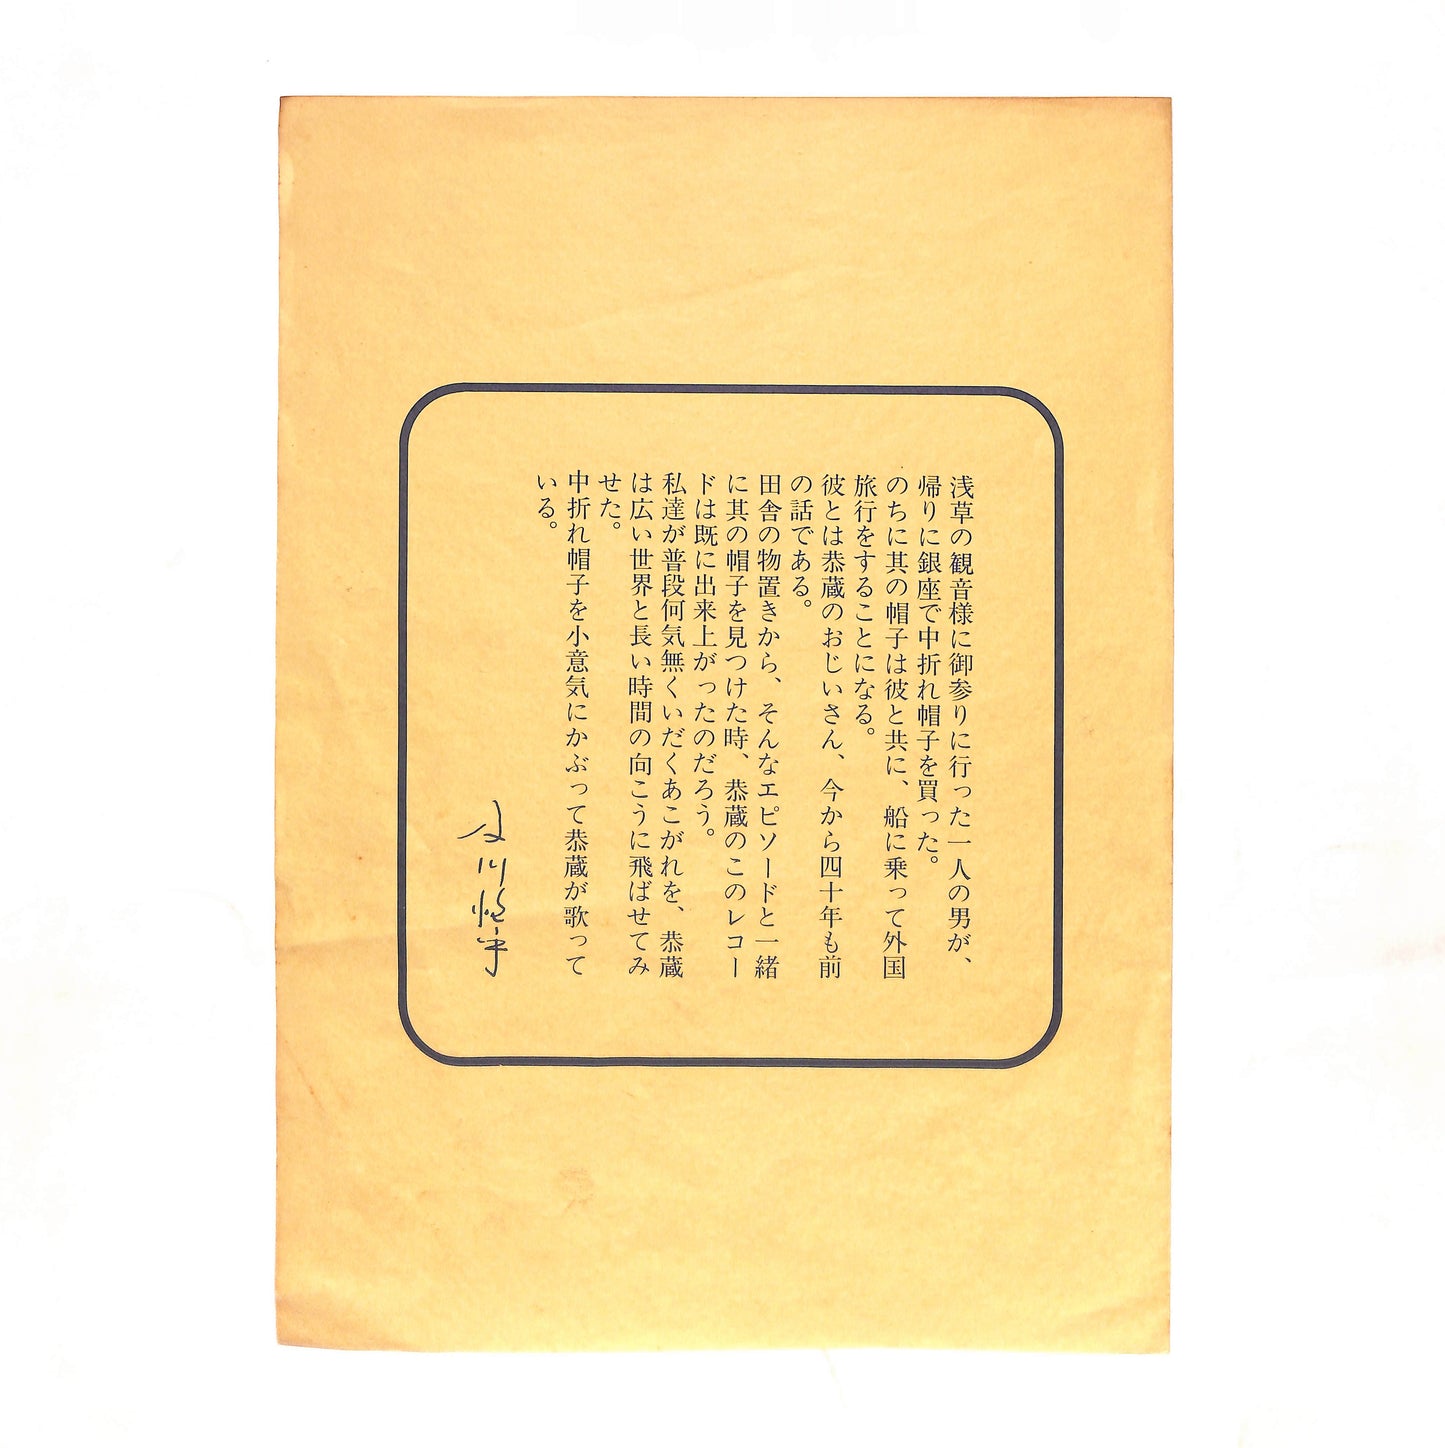 浅草の観音様に御参りに行った一人の男が、
帰りに銀座で中折れ帽子を買った。
のちに其の帽子は彼と共に、船に乗って外国
旅行をすることになる。
彼とは恭蔵のおじいさん、今から四十年も前
の話である。
田舎の物置きから、そんなエピソードと一緒
に其の帽子を見つけた時、恭蔵のこのレコー
ドは既に出来上がったのだろう。
私達が普段何気無くいだくあこがれを、恭蔵
は広い世界と長い時間の向こうに飛ばせてみ
せた。
中折れ帽子を小意気にかぶって恭蔵が歌って
いる。
及川恒平